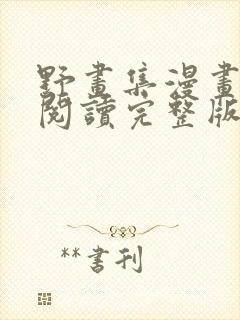 野畫集漫畫
閱讀完整版
**書刊